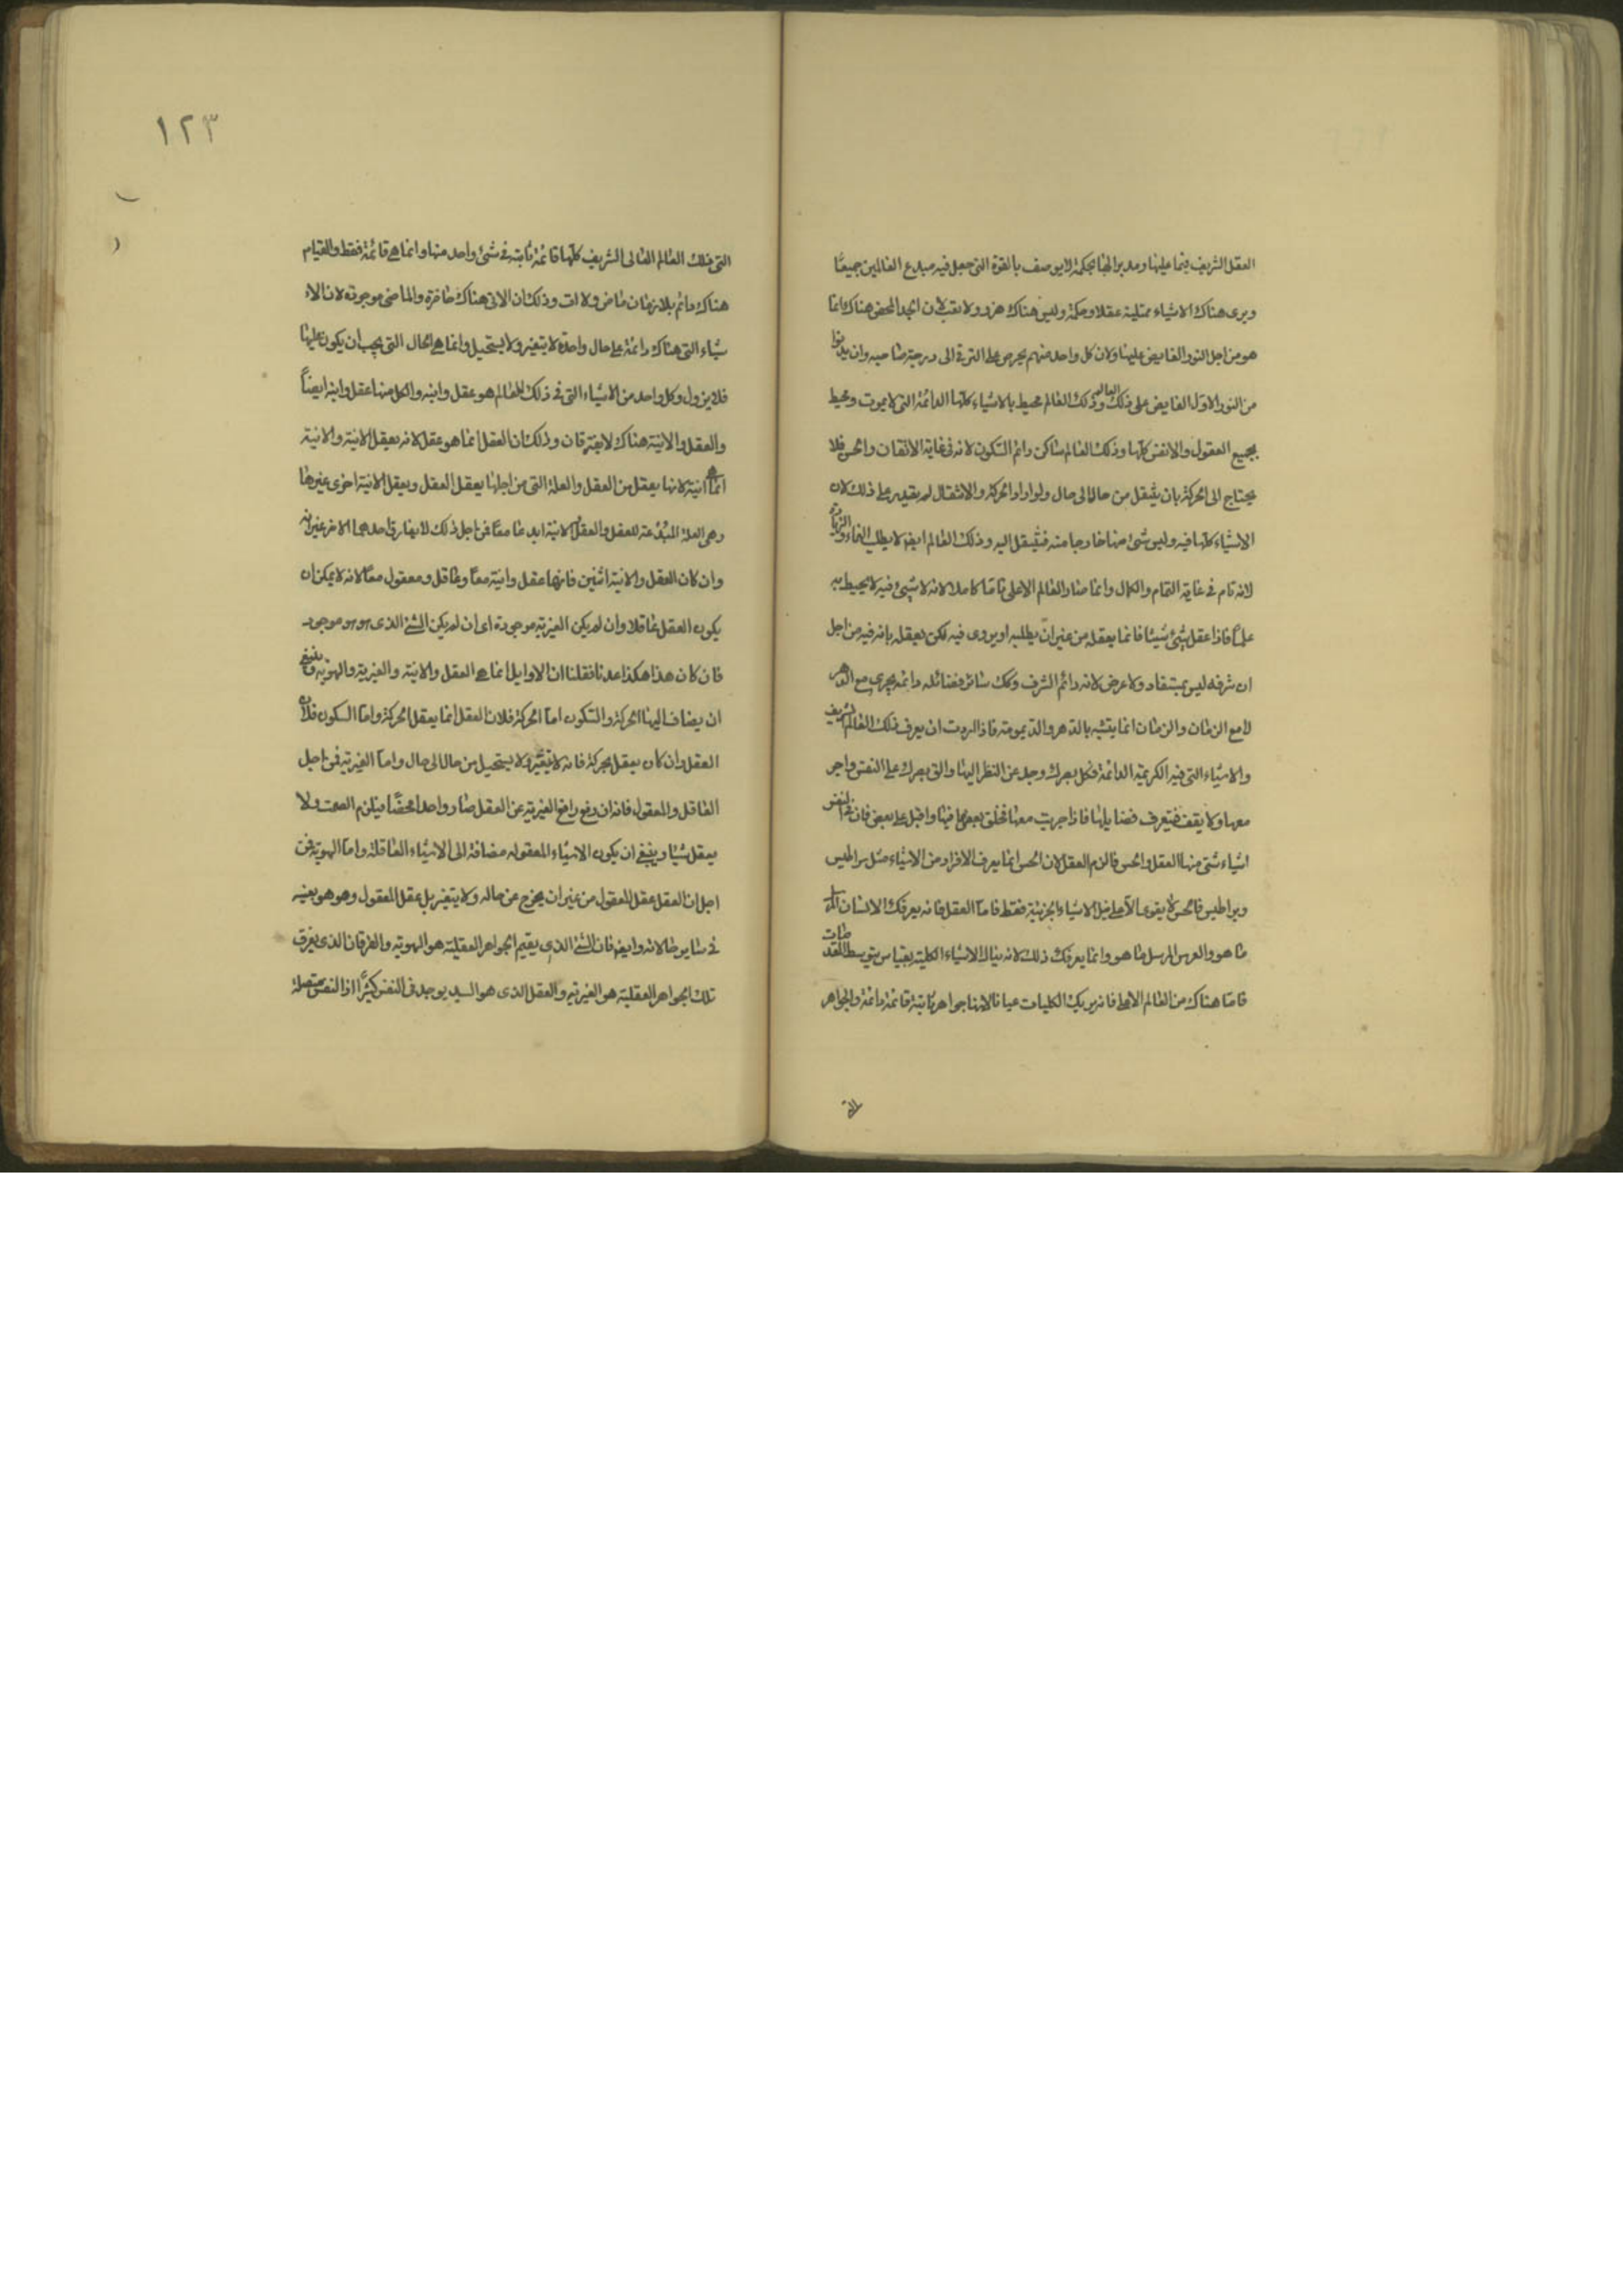 العقل الشريف قيما عليها ومدبرا لها بحكمة لا يوصف بالقوة التى جعل فيه مبدع العالمين جميعًا
ويرى هناك الاشياء ممتلية عقلا وحكمة وليس هناك هزو ولا تعب لان الجد المحض هناك انما
هو من اجل النور الفايض عليها ولان كل واحد منهم يحرص على الترقى الى درجة صاحبه وان يدنوا
من النور الاول الفايض على ذلك العالم وذلك العالم محيط بالاشياء كلها الدائمة التى لا يموت ومحيط
بجميع العقول والانفس كلها وذلك العالم ساكن دائم السكون لانه فى غاية الاتقان والحسن فلا
يحتاج الى الحركة بان ينتقل من حال الى حال ولو اراد الحركة والانتقال لم يقدر على ذلك لان
الاشياء كلها فيه وليس شئ منها خارجا منه فينتقل اليه وذلك العالم ايضا لا يطلب التمام والزيادة
لانه تام فى غاية التمام والكمال وانما صار العالم الاعلى تاما كاملا لانه لا شئ فيه لا يحيط به
علمًا فاذا عقل شئ شيئا فانما يعقله من غير ان يطلبه او يروى فيه لكن يعقله بانه فيه من اجل
ان شرفه ليس بمستفاد ولا عرض لانه دائم الشرف وكك سائر فضائله دائمة يجرى مع الدهر
لا مع الزمان والزمان انما يتشبه بالدهر والديمومة فاذا اردت ان يعرف ذلك العالم الشريف
والاشياء التى فيه الكريمة الدائمة فكل بصرك وجد عن النظر اليها والق بصرك على النفس واجر
معها ولا يقف فتعرف فضايلها فاذا جريت معها فخلق بعضها فيها واقبل على بعض فان فى النفس
اشياء شتى منها العقل والحس فالزم العقل لان الحس انما يعرف الافراد من الاشياء مثل سراطيس
وبراطيس فالحس لا يقوى الا على نيل الاشياء الجزئية فقط فاما العقل فانه يعرفك الانسان المرسل
ما هو والفرس المرسل ما هو وانما يعرفك ذلك لانه ينال الاشياء الكلية بقياس بتوسط المقدمات
فاما هناك من العالم الاعلى فانه يريك الكليات عيانا لانها جواهر ثابتة قائمة دائمة والجواهر
التى
١٢٣
التى فى ذلك العالم العالى الشريف كلها قائمة ثابتة فى شئ واحد منها وانما هى قائمة فقط والقيام
هناك دائم بلا زمان ماض ولا ات وذلك ان الاتى هناك حاضرة والماضى موجوده لان الا
شياء التى هناك دائمة على حال واحدة لا يتغير ولا يستحيل وانما هى الحال التى يجب ان يكون عليها
فلا يزول وكل واحد من الاشياء التى فى ذلك العالم هو عقل وانية والكل منها عقل وانية ايضاً
والعقل والانية هناك لا يفترقان وذلك ان العقل انما هو عقل لانه يعقل الانية والانية
انما هى انية لانها يعقل من العقل والعلة التى من اجلها يعقل العقل ويعقل الانية اخرى غيرها
وهى العلة المبدعة للعقل والعقل والانية ابدعا معًا فمن اجل ذلك لا يفارق احدهما الاخر غير انه
وان كان العقل والانية اثنين فانها عقل وانية معًا وعاقل ومعقول معًا لانه لا يمكن ان
يكون العقل عاقلا وان لم يكن الغيرية موجودة اى ان لم يكن الشئ الذى هو هو موجود
فان كان هذا هكذا عدنا فقلنا ان الاوايل انما هى العقل والانية والغيرية والهوية وينبغى
ان يضاف اليها الحركة والسكون اما الحركة فلان العقل انما يعقل الحركة واما السكون فلان
العقل وان كان يعقل بحركة فانه لا يتغير ولا يستحيل من حال الى حال واما الغيرية فمن اجل
العاقل والمعقول فانه ان رفع رافع الغيرية عن العقل صار واحدا محضًا فيلزم الصمت ولا
يعقل شيئا وينبغى ان يكون الاشياء المعقوله مضافة الى الاشياء العاقلة واما الهوية فمن
اجل ان العقل عقل المعقول من غير ان يخرج عن حاله ولا يتغير بل عقل المعقول وهو هو بعينه
فى سائر حالاته وايضا فان الشئ الذى يقيم الجواهر العقلية هو الهوية والفرقان الذى يفرق
تلك الجواهر العقلية هو الغيرية والعقل الذى هو السيد يوجد فى النفس كثيرًا اذا النفس متصلة